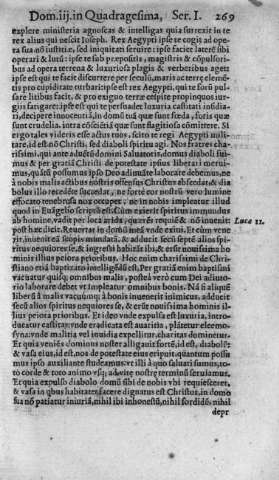 Dom. iij. in Quadragesima, Ser. I. 269
explere ministeria agnoscas & intelligas quia surrexit in te
rex alius qui nescit Ioseph. Rex Aegypti ipse te cogit ad ope-
ra sua nō iustitię, sed iniquitatis seruire: ipse facit lateré sibi
operari & lutū: ipse te sub prępositis, magistris & cōpulsori-
bus ad opera terrena & luxuriosa plagis & verberibus ageri:
ipse est qui te facit discurrere per seculū, maris ac terrę elemē
tis pro cupiditate turbari: ipse est rex Aegypti, qui te forū pul-
sare litibus facit, & pro exiguo terrę cespite propinquos iur-
gijs fatigare: ipse est qui te persuadet luxuria castitati insidia-
ri, decipere innocentē, in domo tua quę sunt fœda, foris quę
sunt crudelia, intra cōsciētiā quę sunt flagitiosa cōmittere. Si
ergo tales videris esse actus tuos, scito te regi Aegypti mili-
tare, id est nō Christi, sed diaboli spiritu agi. Nos fratres cha-
rissimi, qui ante aduētū domini Saluatoris, domus diaboli fui-
mus & per gratiā Christi de potestate ipsius liberari merui-
mus, quātū possumus ipso Deo adiuuāte laborare debemus, ne
à nobis malis actibus nostris offensus Christus abscedat & dia-
bolus illo recedēte succedat, ne forte cor nostrū vero lumine
effocato tenebrosa nox occupet, ne in nobis impleatur illud
quod in Euāgelio scriptū est. Cum exierit spiritus immundus
ab homine, vadit per loca arida quęrēs requiē & nō inuenit:
post hæc dicit. Reuertar in domū meā vnde exiui. Et cùm vene
rit, inuenit eā scopis mundatā, & adducit secū septē alios spi-
ritus nequiores se, & ingressi habitāt ibi, & erūt nouissima ho
minis illius peiora prioribus. Hoc enim charissimi de Chri-
stiano etiā baptizato intelligēdū est, Per gratiā enim baptismi
vacuatus quisq; omnibus malis, postea verò cum Dei adiuto-
rio laborare debet vt impleatur omnibus bonis. Nā si aliquē
liberū à malis vacuumq; à bonis inuenerit inimicus, adducit
secū alios spiritus nequiores se, & erūt nouissima hominis il-
lius peiora prioribus. Et ideo vnde expulsa est luxuria, intro-
ducatur castitas: vnde eradicata est auaritia, plātetur eleemo-
syna: vnde malitia vel inuidia expellitur, charitas dominetur.
Et quia veniēs dominus noster alligauit fortē, id est, diabolū
& vasa eius, id est, nos de potestate eius eripuit, quantum possu-
mus ipso auxiliante studeamus, vt illi à quo saluati sumus, to-
to corde & toto animo vsq; ad vitę nostrę terminū seruiamus.
Et quia expulso diabolo domū sibi de nobis vbi requiesceret,
& vasa in qbus habitaret facere dignatus est Christus, in domo
sua nō patiatur iniuriā, nihil ibi inhonestū, nihil sordidū, nihil
depr
Luca 11.